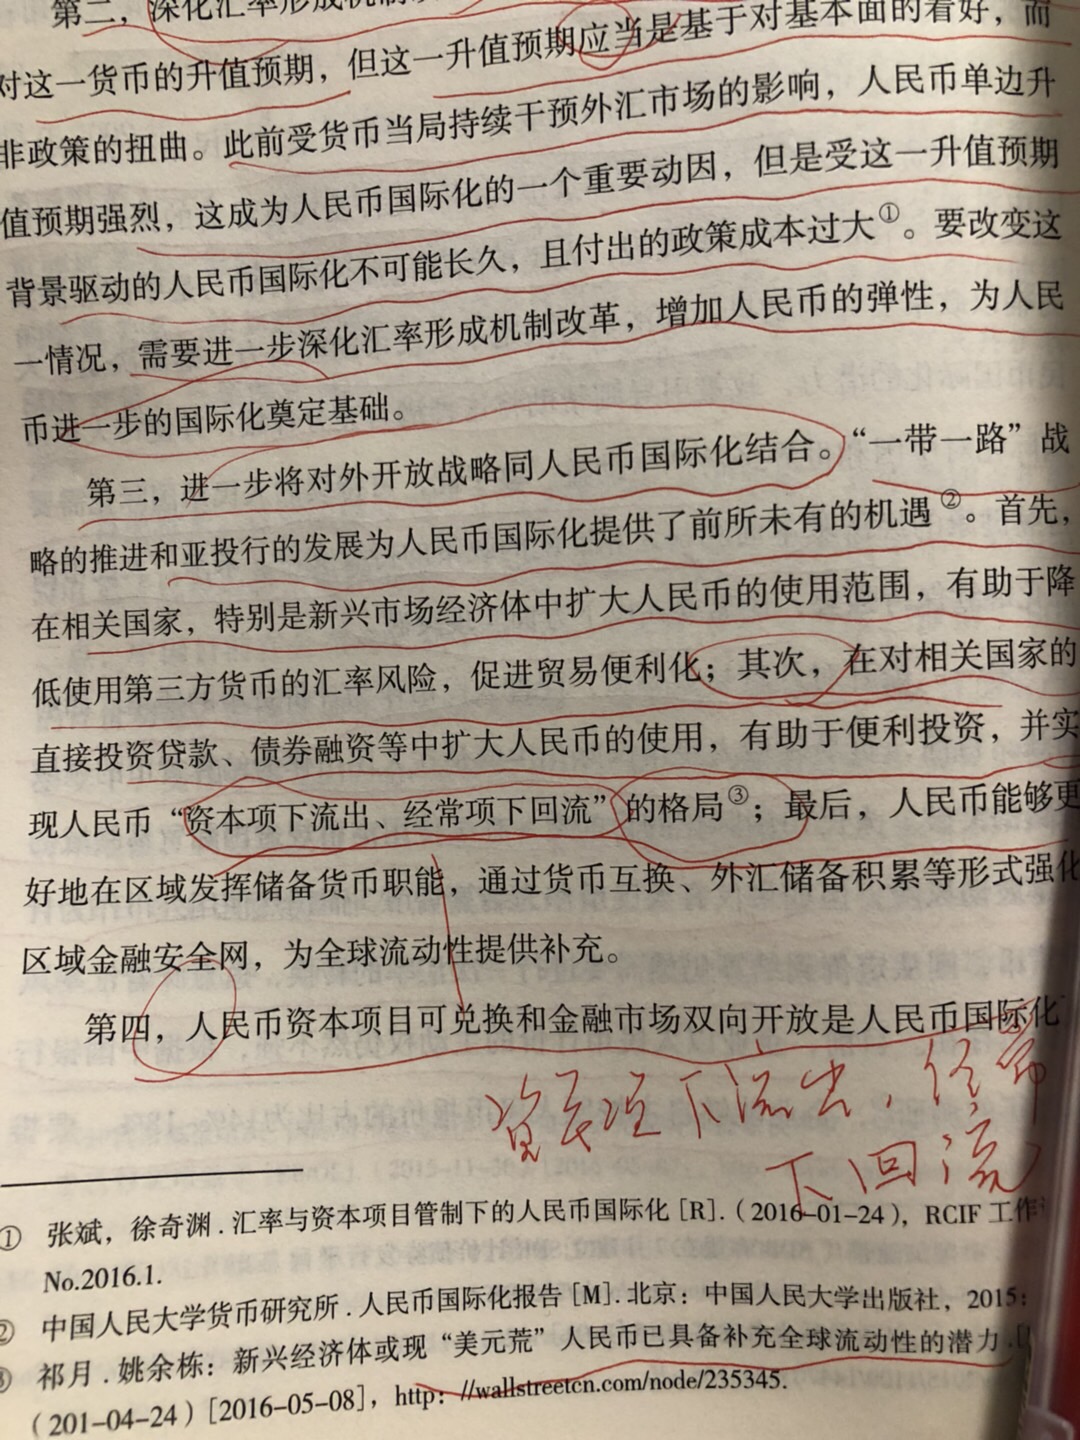 第二，深化汇率形成机制
对这一货币的升值预期，但这一升值预期应当是基于对基本面的看好，而
非政策的扭曲。此前受货币当局持续干预外汇市场的影响，人民币单边升
值预期强烈，这成为人民币国际化的一个重要动因，但是受这一升值预期
背景驱动的人民币国际化不可能长久，且付出的政策成本过大①。要改变这
一情况，需要进一步深化汇率形成机制改革，增加人民币的弹性，为人民
币进一步的国际化奠定基础。
第三，进一步将对外开放战略同人民币国际化结合。“一带一路”战
略的推进和亚投行的发展为人民币国际化提供了前所未有的机遇②。首先，
在相关国家，特别是新兴市场经济体中扩大人民币的使用范围，有助于降
低使用第三方货币的汇率风险，促进贸易便利化；其次，在对相关国家的
直接投资贷款、债券融资等中扩大人民币的使用，有助于便利投资，并实
现人民币“资本项下流出、经常项下回流”的格局③；最后，人民币能够更
好地在区域发挥储备货币职能，通过货币互换、外汇储备积累等形式强化
区域金融安全网，为全球流动性提供补充。
第四，人民币资本项目可兑换和金融市场双向开放是人民币国际化
资本项下流出，经常
下回流
① 张斌，徐奇渊．汇率与资本项目管制下的人民币国际化［R］.（2016-01-24），RCIF 工作
No.2016.1.
② 中国人民大学货币研究所．人民币国际化报告［M］. 北京：中国人民大学出版社，2015：
③ 祁月．姚余栋：新兴经济体或现“美元荒”人民币已具备补充全球流动性的潜力．
（201-04-24）［2016-05-08］，http：//wallstreetcn.com/node/235345.